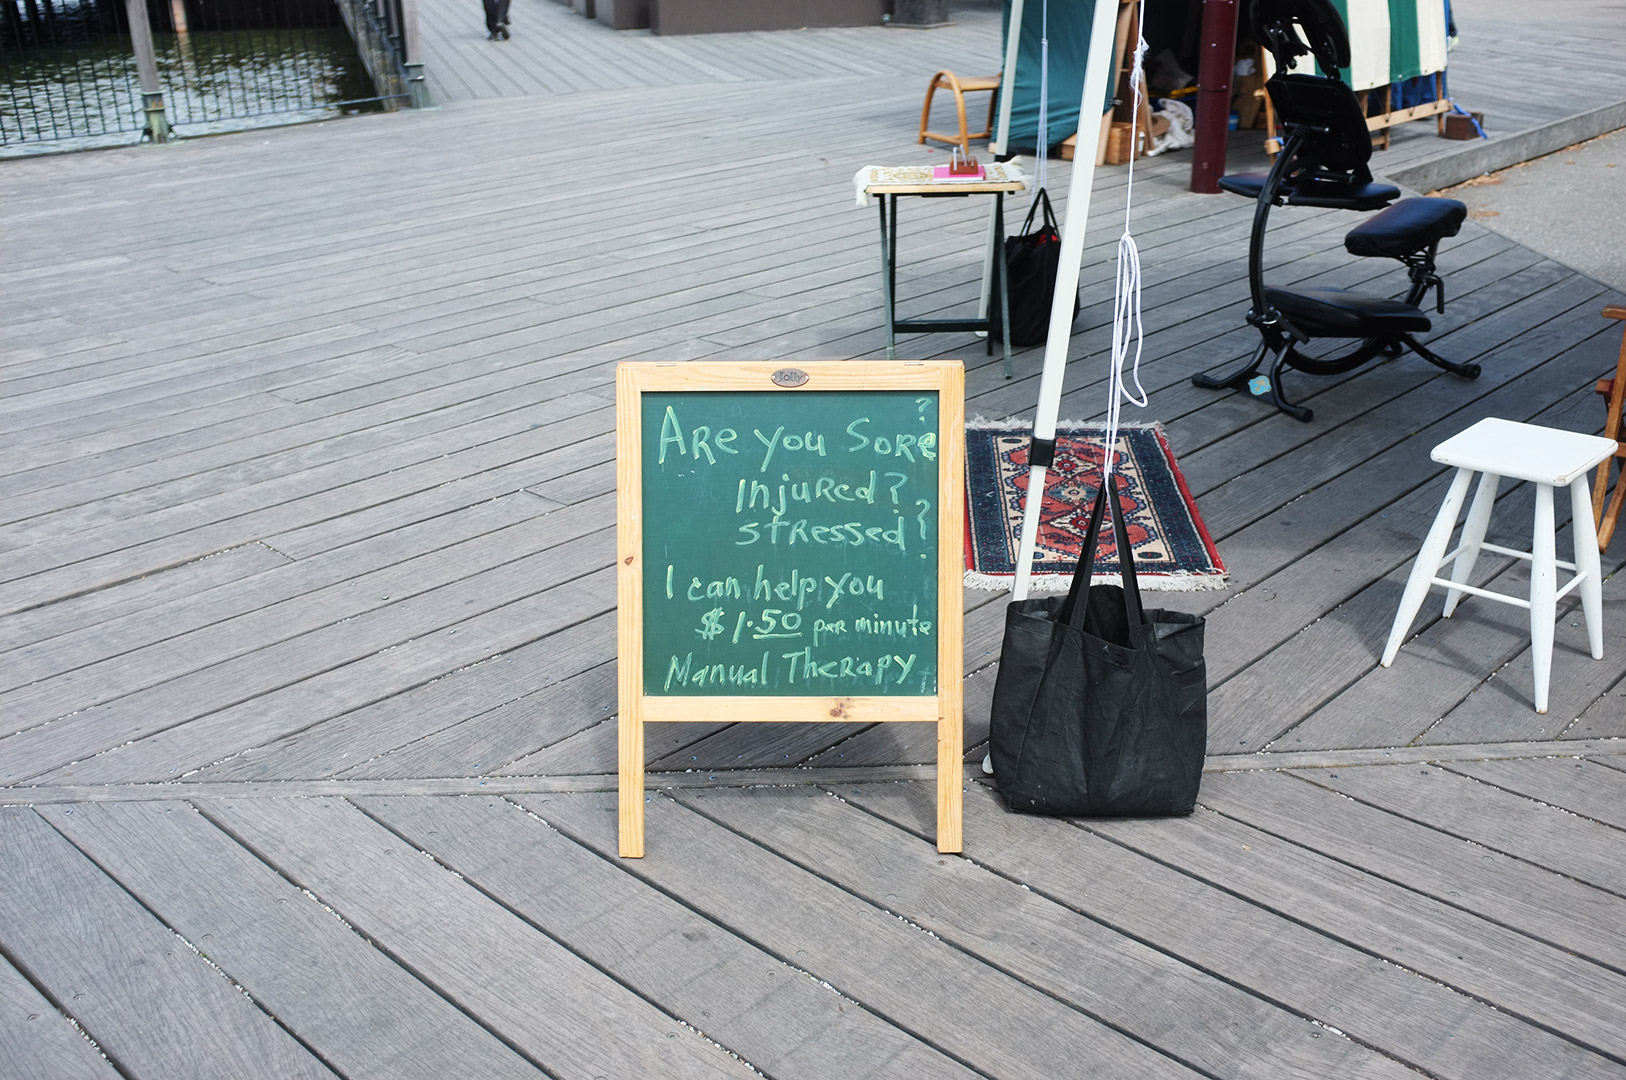 Jolly
Are you Sore?
Injured?
stressed?
I can help you
$1.50 per minute
Manual Therapy